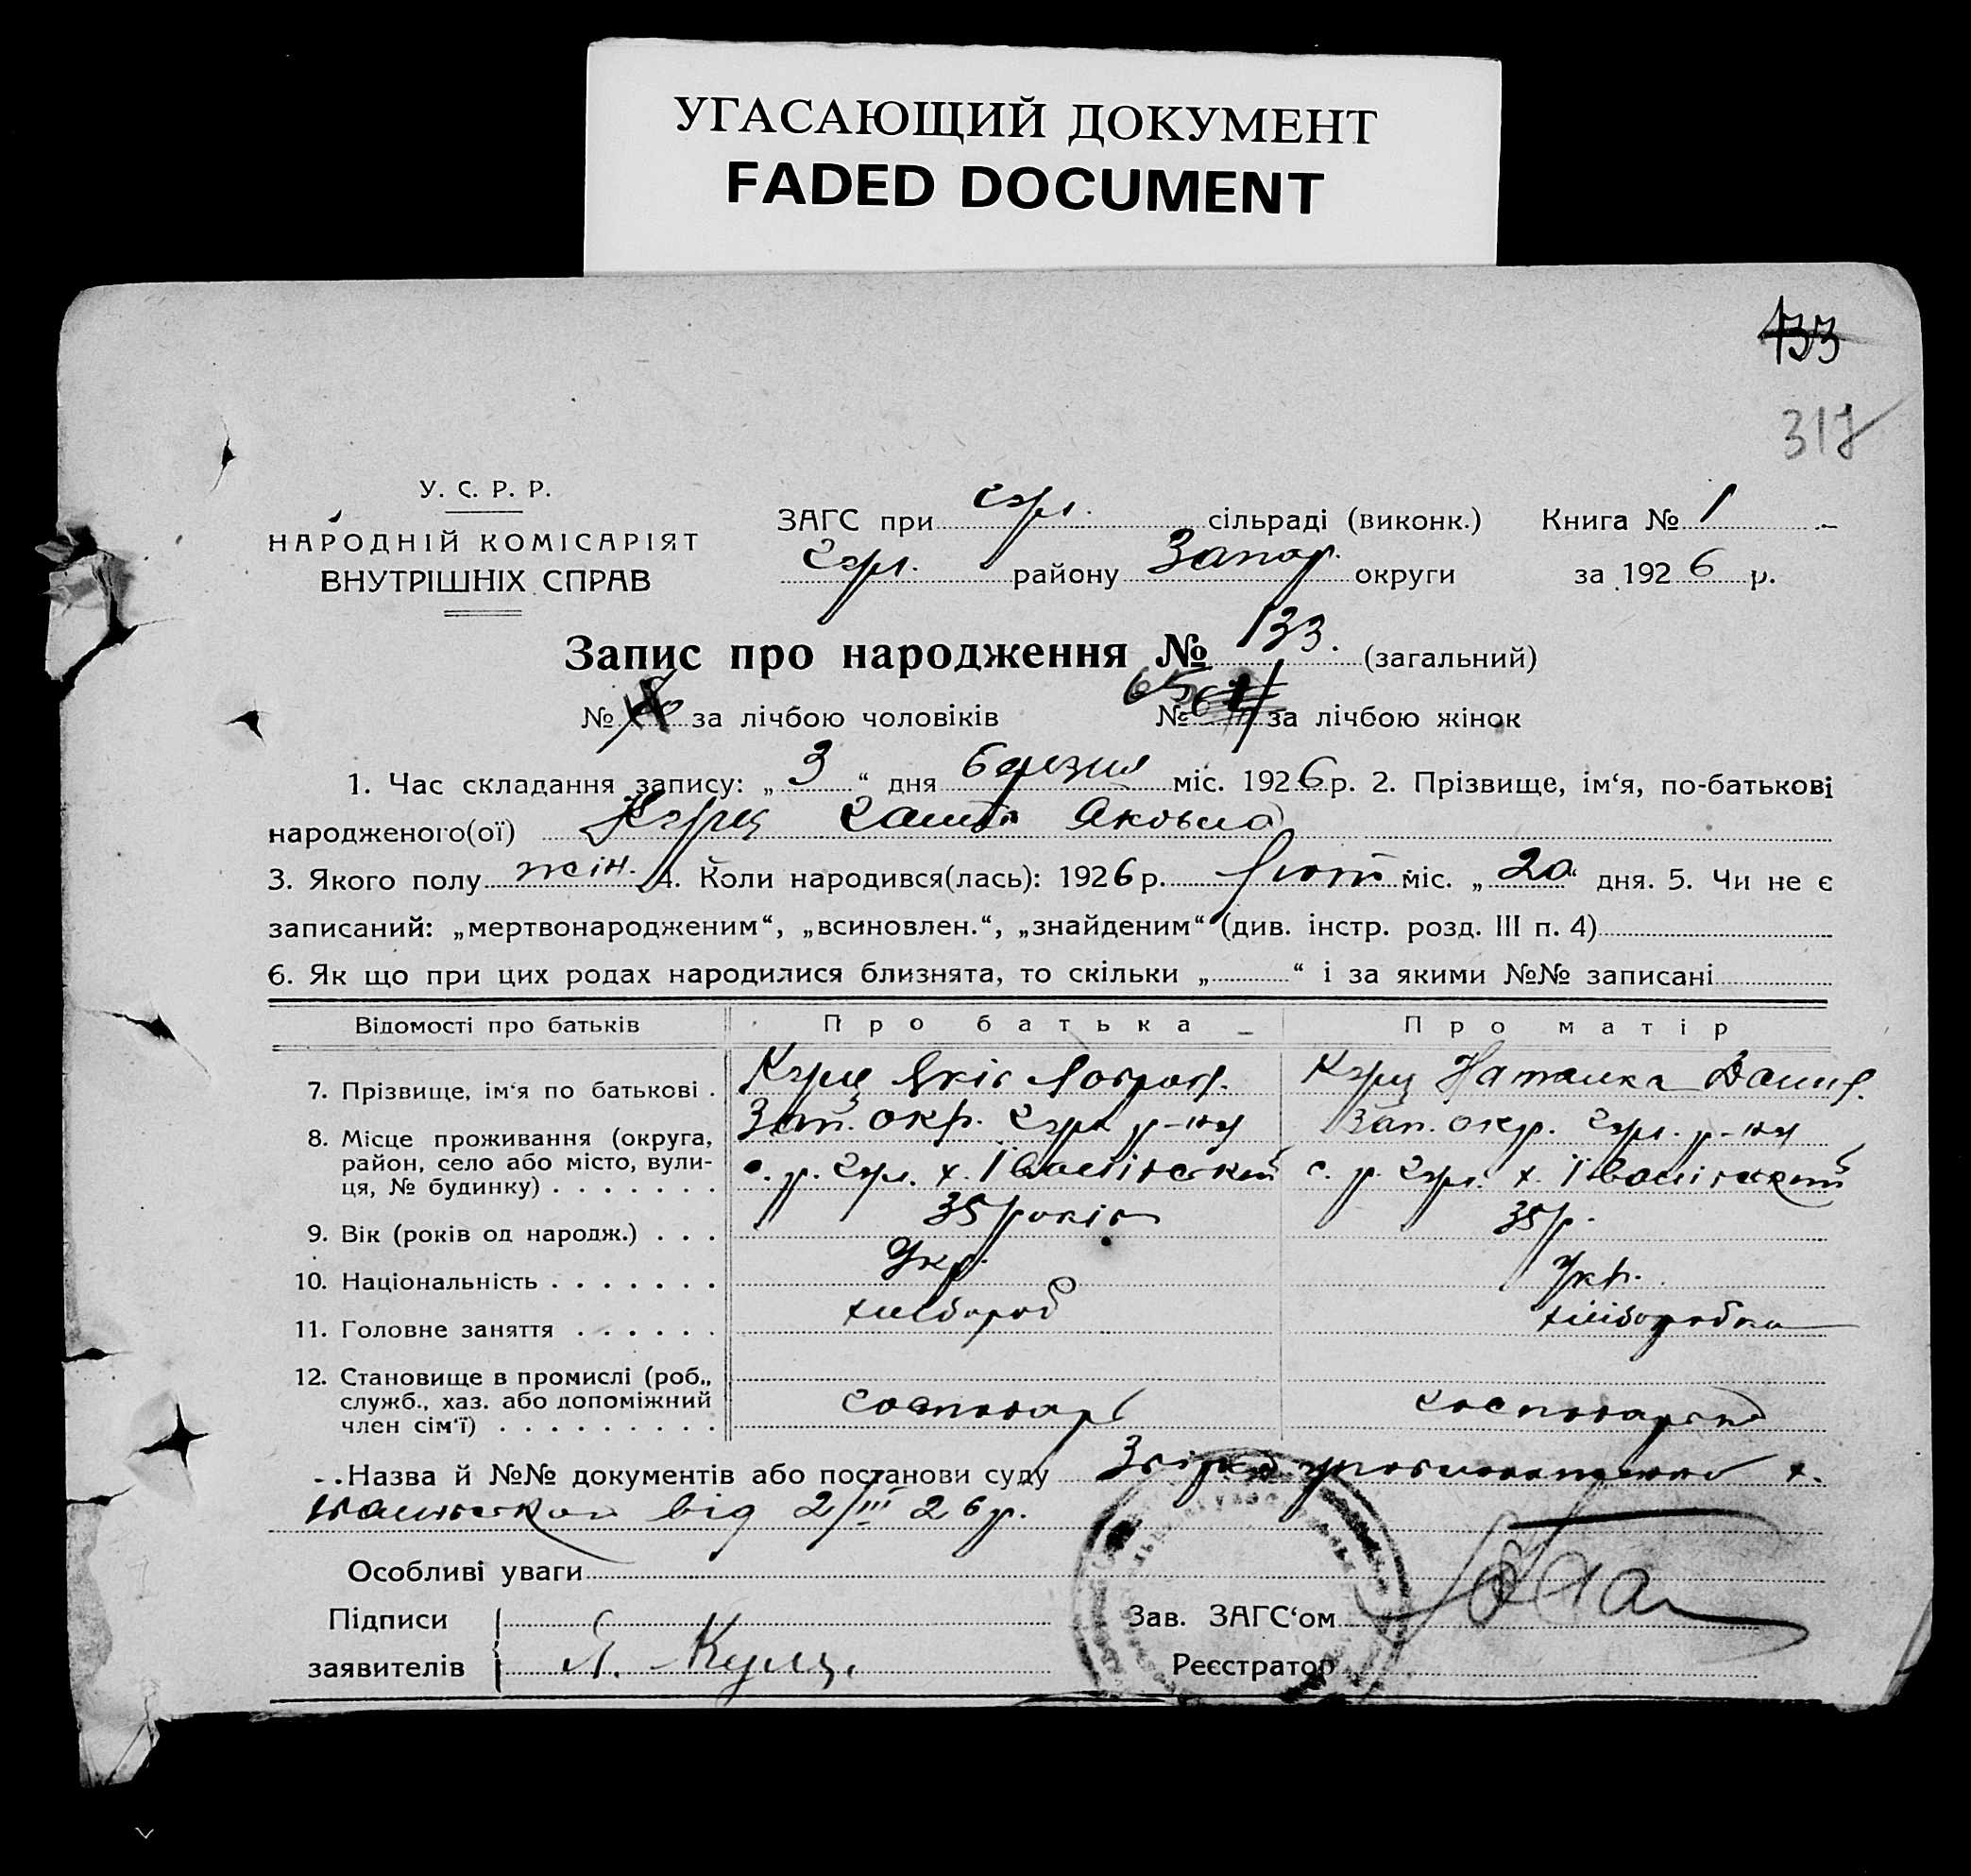 УГАСАЮЩИЙ ДОКУМЕНТ
FADED DOCUMENT
133
317
У. С. Р. Р.
НАРОДНІЙ КОМІСАРІЯТ
ВНУТРІШНІХ СПРАВ
ЗАГС при сільраді (виконк.) Книга № 1
району Запор. округи за 1926 р.
Запис про народження № 133. (загальний)
№ за лічбою чоловіків № 65 за лічбою жінок
1. Час складання запису: „3“ дня березня міс. 1926 р. 2. Прізвище, ім‘я, по-батькові
народженого(ої) Яковна
3. Якого полу жін. 4. Коли народився(лась): 1926 р. Лют міс. „20“ дня. 5. Чи не є
записаний: „мертвонародженим“, „всиновлен.“, „знайденим“ (див. інстр. розд. III п. 4)
6. Як що при цих родах народилися близнята, то скільки „ “ і за якими №№ записані
Відомості про батьків Про батька Про матір
7. Прізвище, ім‘я по батькові . Куць Яків Куць Наталка Данил.
8. Місце проживання (округа, Зап. окр. р-ну Зап. окр. р-ну
район, село або місто, вули- с. р. х. Іванівський с. р. х. Іванівський
ця, № будинку) . . . . . . .
9. Вік (років од народж.) . . . 35 років 35 р.
10. Національність . . . . . . . Укр. Укр.
11. Головне заняття . . . . . . хлібороб хліборобка
12. Становище в промислі (роб.,
служб., хаз. або допоміжний господарь господарка
член сім‘ї) . . . . . . . . .
Назва й №№ документів або постанови суду х.
від 2/III 26 р.
Особливі уваги
Підписи Зав. ЗАГС‘ом
заявителів Я. Куць. Реєстратор